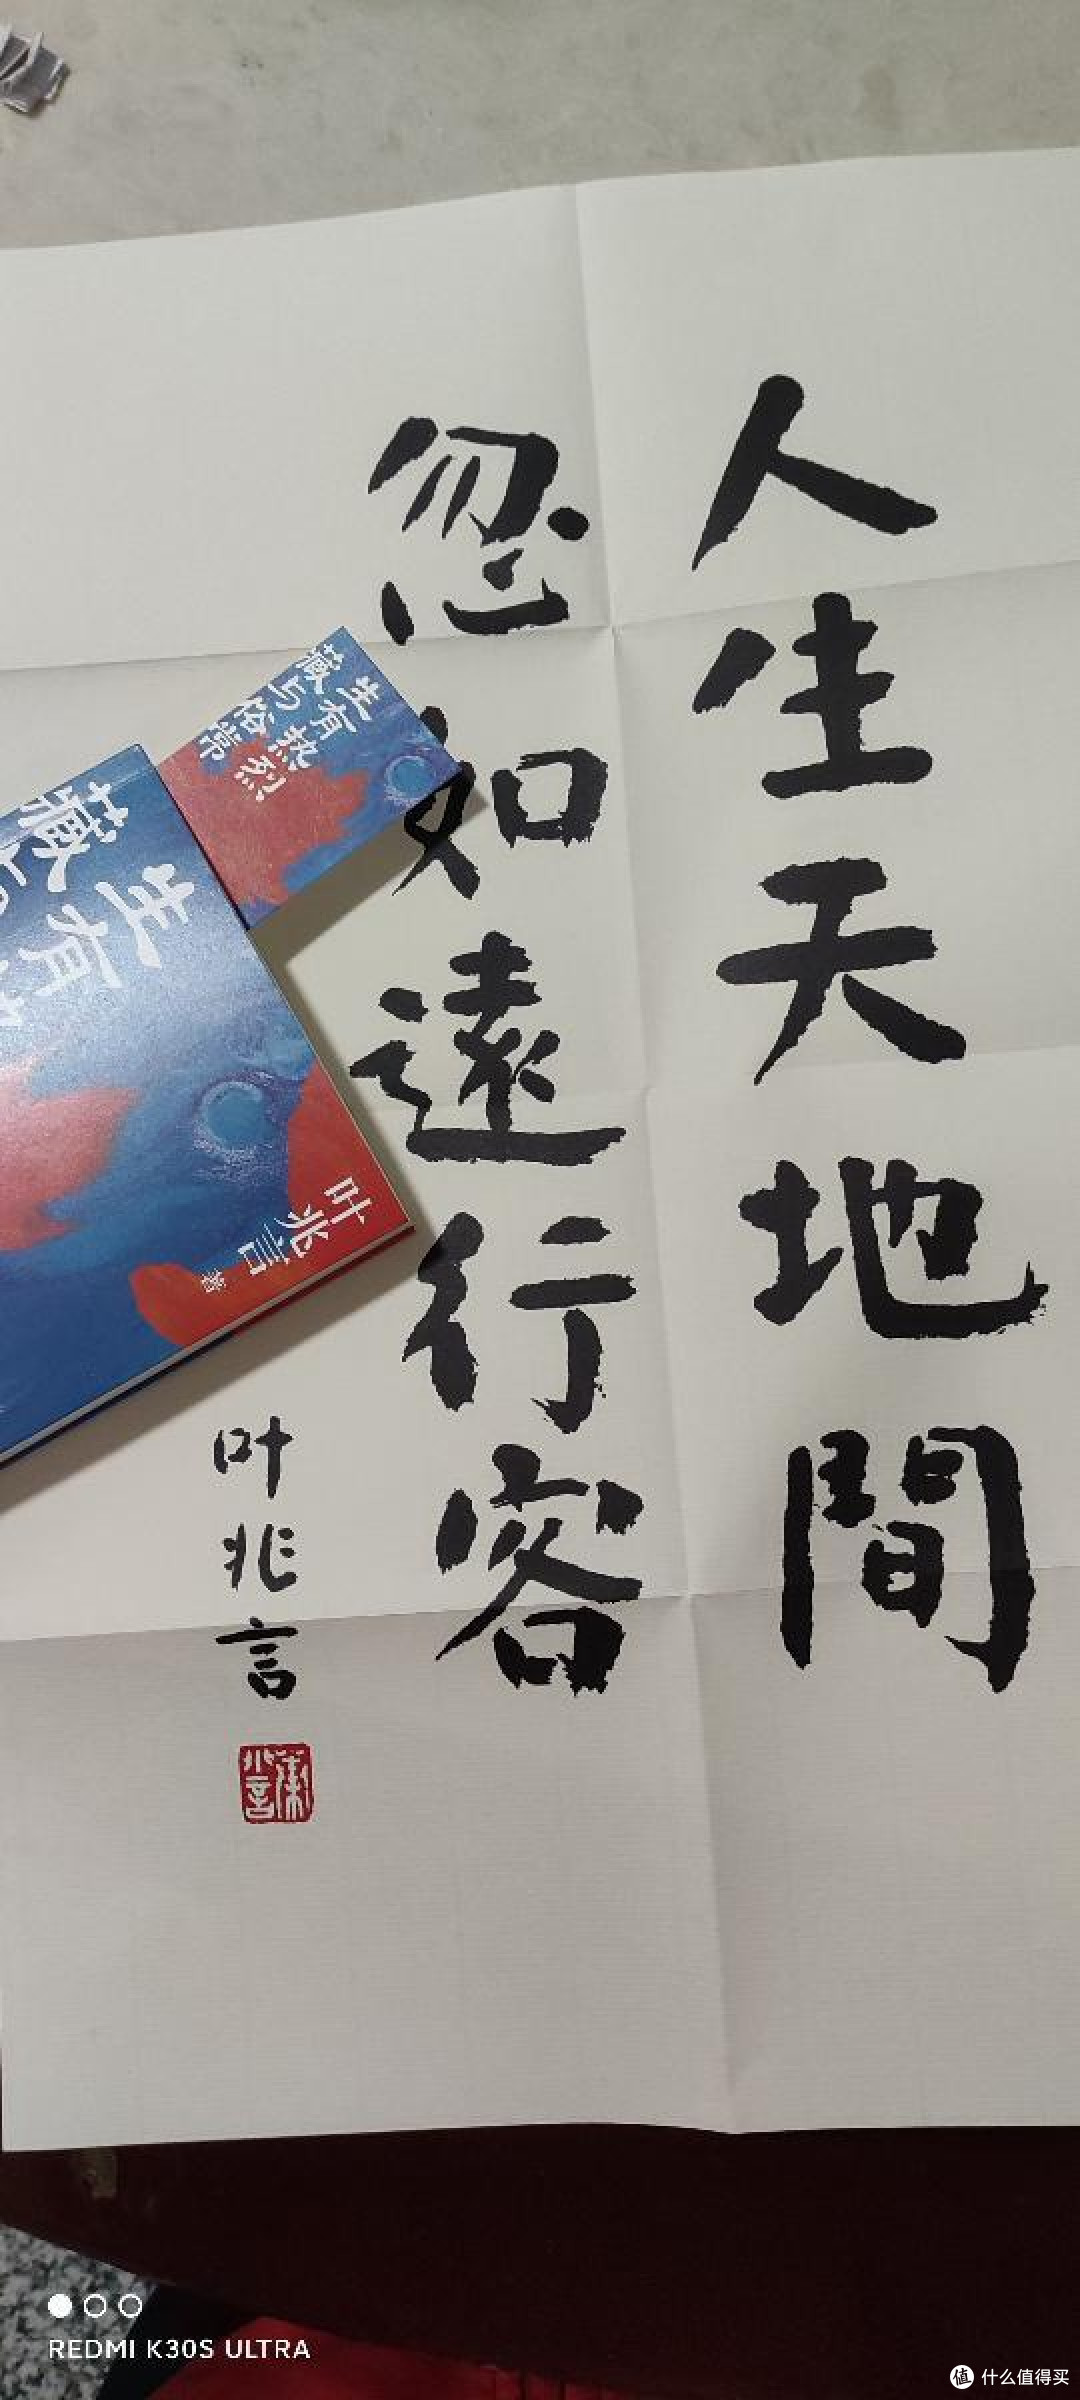 人生天地間
忽如遠行客
叶兆言
兆言
生有热烈
藏与俗常
生有
藏
叶兆言 著
REDMI K30S ULTRA
值 什么值得买